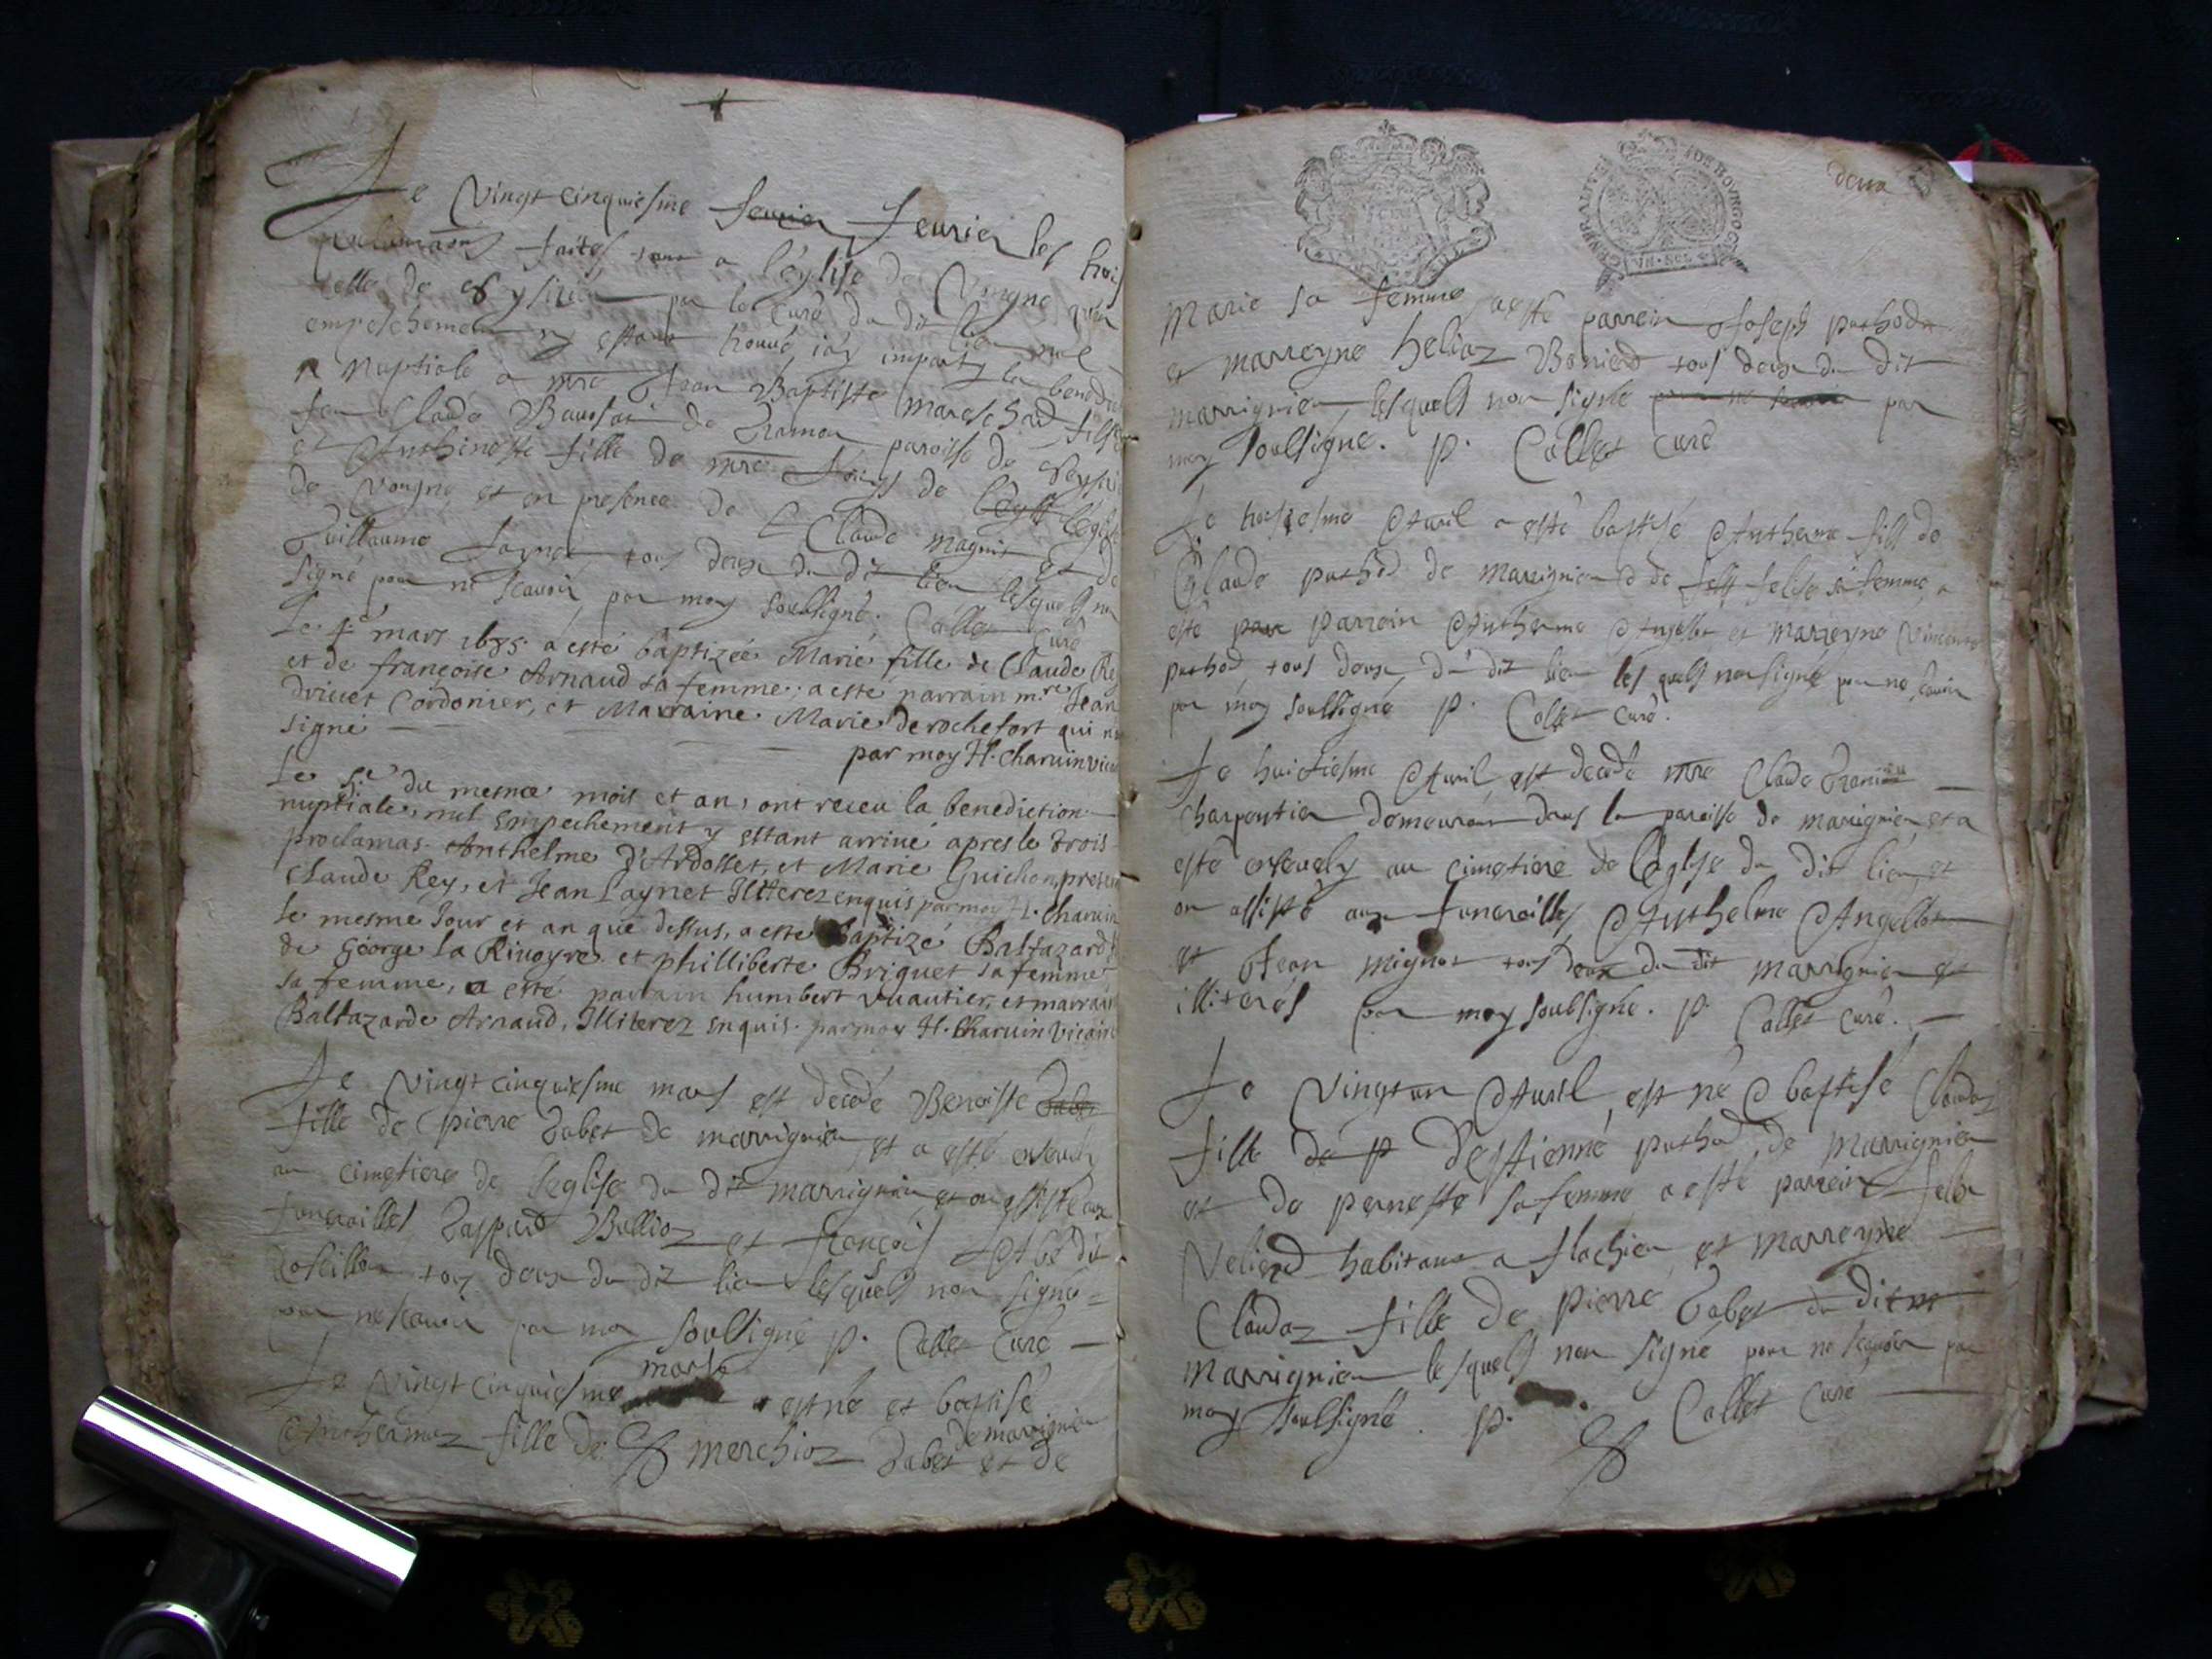 Le vingt cinquiesme feurier feurier les trois
faites a l'eglise de Vongne
celle de par le curé du dit lieu nul
empeschement ny estant trouvé iay imparty la
nuptiale a mre Jean Baptiste mareschad fils
feu Claude de paroisse de
et Anthinette fille de mre de l'eglise
de vongne, et en presence de Claude magnin et de
Guillaume tous deux du dit lieu lesquels non
signé pour ne scavoir par moy soubsigné. Collet Curé
Le 4e mars 1685. a esté baptizée Marie fille de Claude Rey
et de françoise Arnaud sa femme; a esté parrain mre Jean
drivet Cordonier, et Marraine Marie de rochefort qui
signé
par moy H. charuin
Le 5e du mesme mois et an, ont receu la benediction
nuptiale, nul Empechement y estant arriué apres le trois
proclamas Anthelme D'Ardosset, et Marie Guichon
Claude Rey, et Jean Paynet Illterez enquis par moy H. charuin
le mesme Jour et an que dessus, a esté Baptizé Baltazard
de George la Riuoyre et philliberte Briguet sa femme
sa femme, a esté parrain humbert vuautier, et
Baltazarde Arnaud, Illiterez enquis. par moy H. Charuin vicaire
Le vingt cinquiesme mars est decedé Benoiste
fille de pierre Tabet de marrignieu et a esté
au cimetiere de l'eglise du dit marrignieu et on assisté aux
funerailles Gaspard Bullioz et françois dit
tous deux du dit lieu lesquels non signé
pour ne scavoir par moy soubsigné p. Collet Curé
mars
Le vingt cinquiesme est né et baptisé
de marrignieu
Anthermaz fille de merchioz Tabet et de
deux
GENERALITE DE BOVRGOG
VN SOL
Marie sa femme a esté parrein Joseph puthod
et marreyne heliaz Bonied tous deux du dit
marrignieu, lesquels non signé par
moy soubsigné. p. Collet curé
Le troisiesme Avril a esté baptisé Antherme fils de
Claude puthod de Marrignieu & de felise sa femme a
esté parrein Antherme Angellot et marreyne vincente
puthod, tous deux du dit lieu les quels non signé pour ne scavoir
par moy soubsigné p. Collet curé.
Le huictiesme Avril est decedé mre Claude
charpentier demeurant dans la paroisse de marrignieu, et a
esté ensevely au cimetiere de l'eglise du dit lieu, et
on assisté aux funerailles Anthelme Angellot
et Jean mignot tous deux du dit marrignieu et
illiterés par moy soubsigné. p. Collet curé.
Le vingt un Avril, est né & baptisé Claudaz
fille de p d'estienne puthod de Marrignieu
et de pernette sa femme a esté parrein felix
Veliend habitant a flachieu et marreyne
Claudaz fille de pierre Tabet du dit
marrignieu lesquels non signé pour ne sçavoir par
moy soubsigné. p. Collet Curé